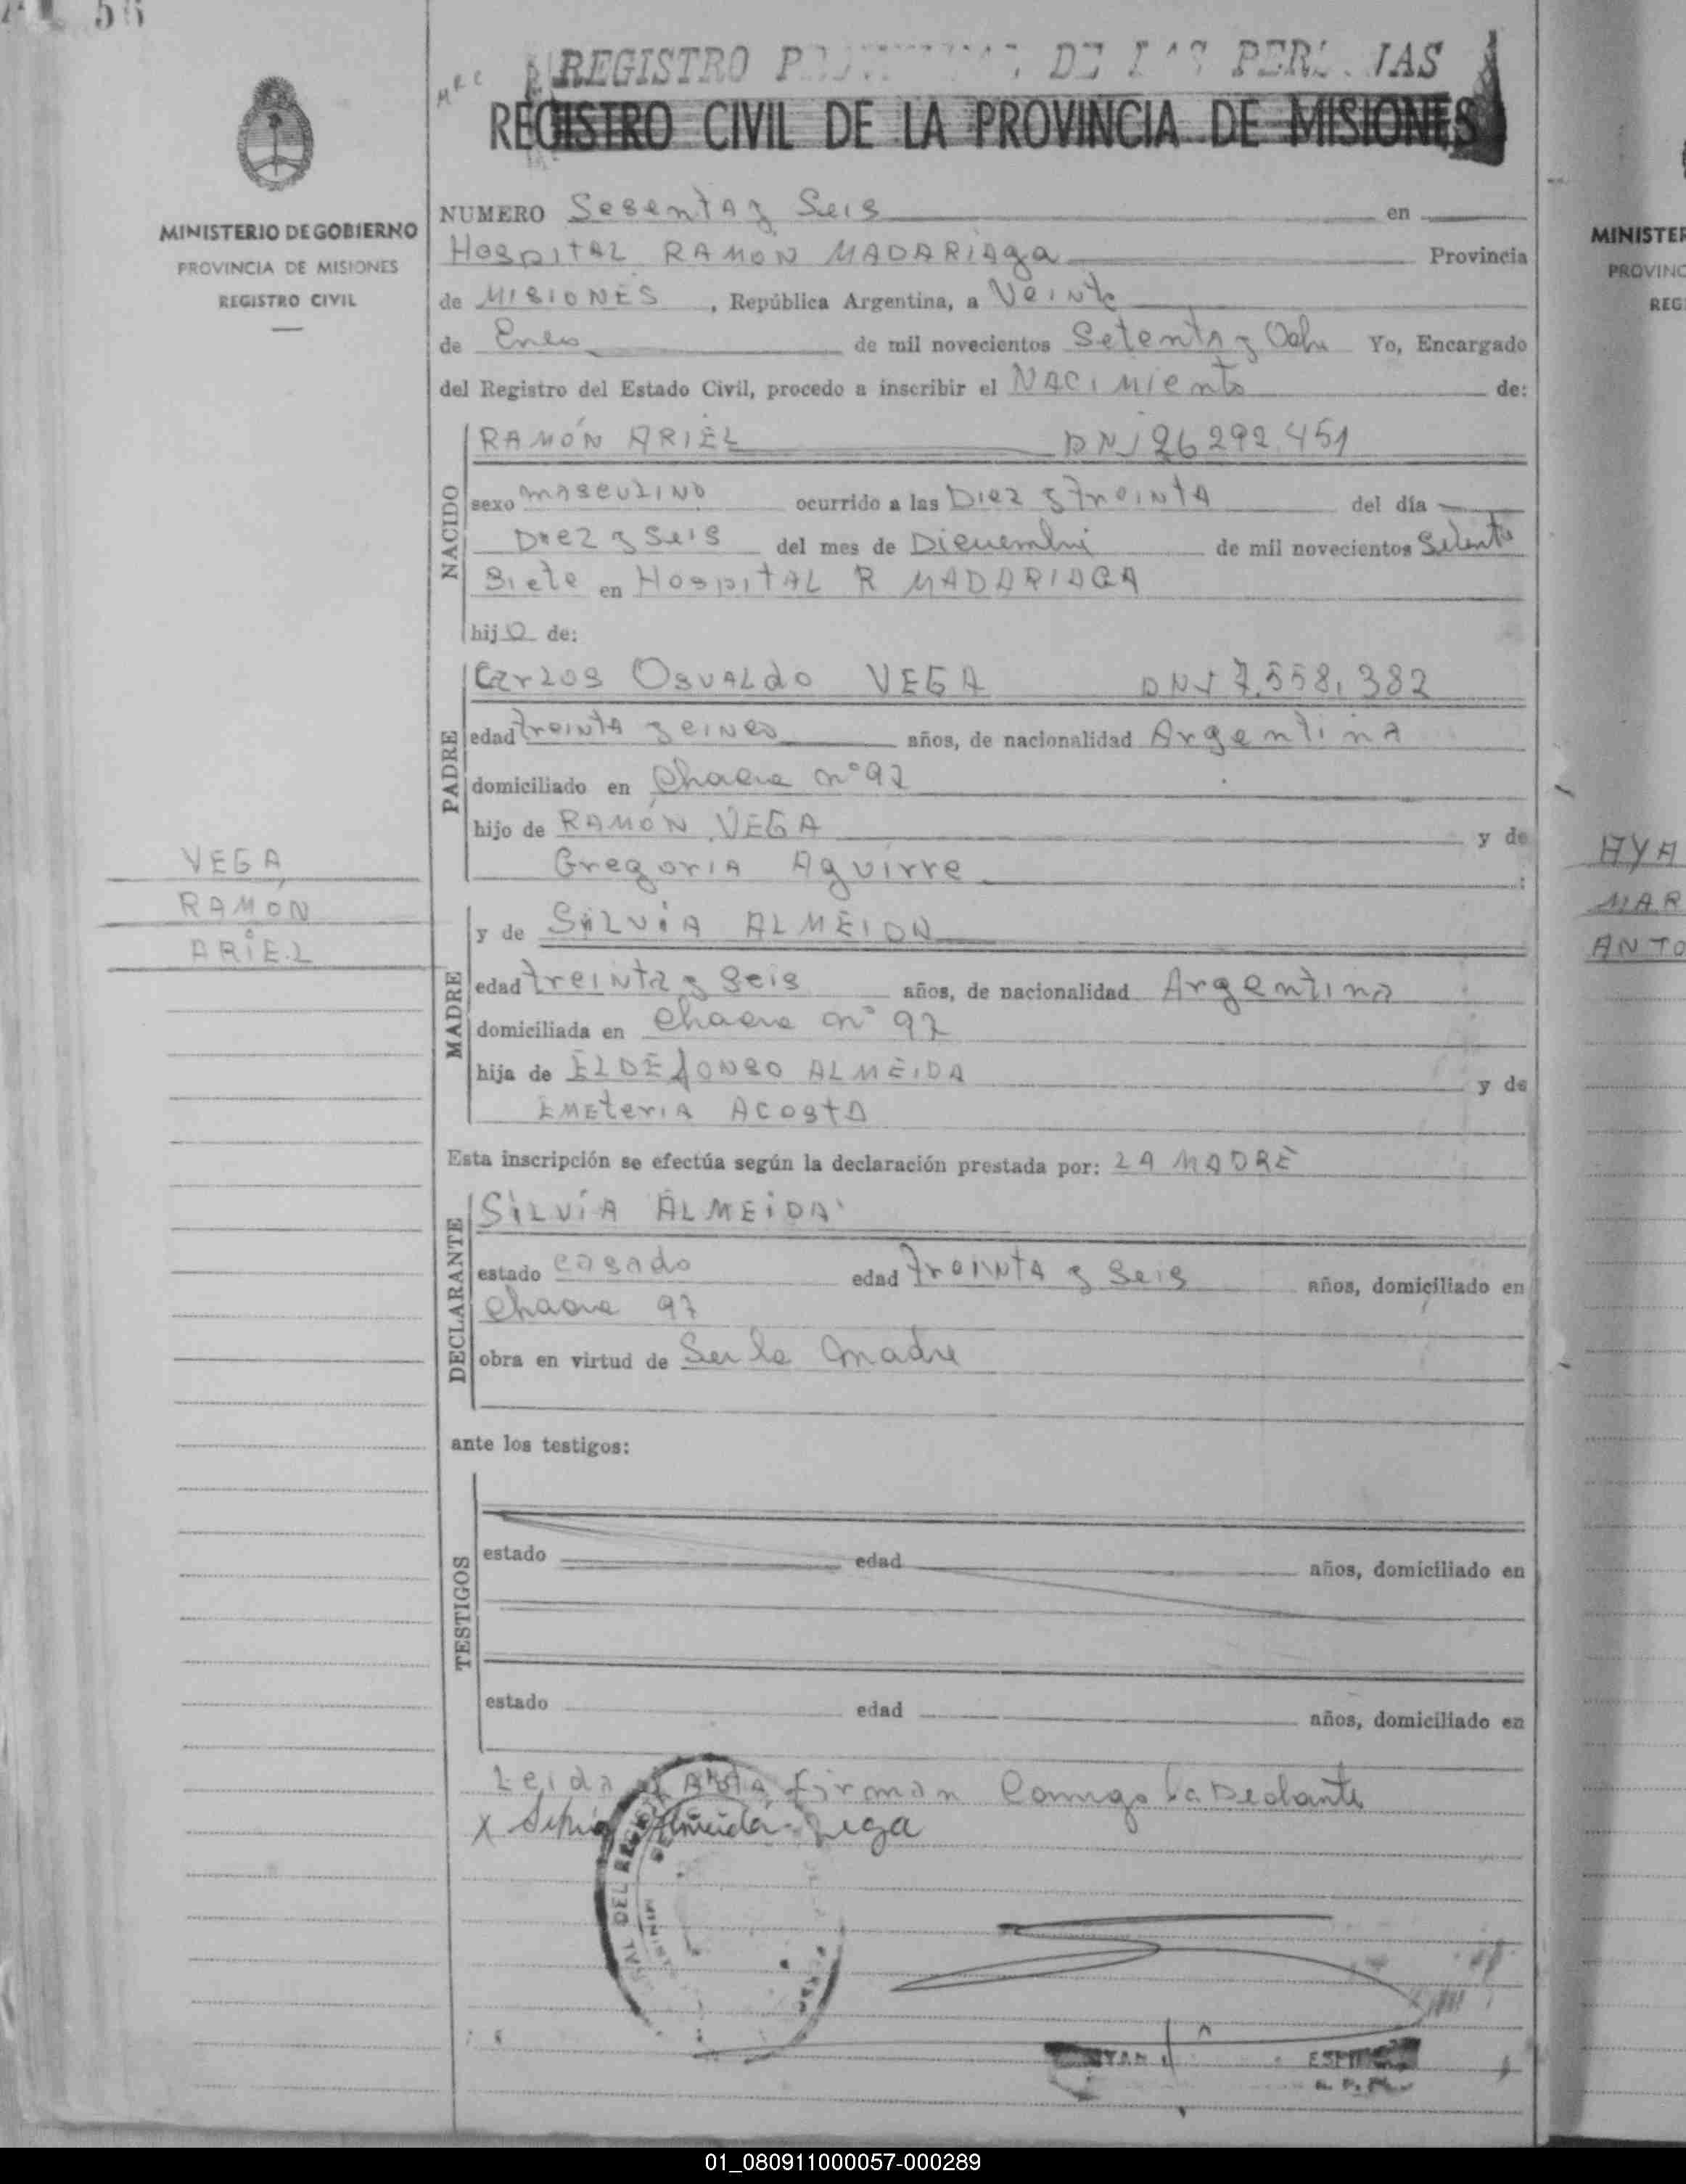 56
MRC
REGISTRO DE LAS PERSONAS
REGISTRO CIVIL DE LA PROVINCIA DE MISIONES
MINISTERIO DE GOBIERNO
PROVINCIA DE MISIONES
REGISTRO CIVIL
NUMERO Sesenta y Seis en
Hospital RAMON MADARIAga Provincia
de MISIONES, República Argentina, a Veinte
de Enero de mil novecientos Setenta y Ocho Yo, Encargado
del Registro del Estado Civil, procedo a inscribir el NACIMiento de:
NACIDO
RAMÓN ARIEL DNI 26 292.451
sexo mascULINO ocurrido a las Diez y treinta del día
Diez y Seis del mes de Diciembre de mil novecientos Setenta
Siete en HospitAL R MADARIAGA
hijo de:
PADRE
Carlos OsvaLdo VEGA DNI 7.558.382
edad treinta y cinco años, de nacionalidad Argentina
domiciliado en Chacra nº 97
hijo de RAMÓN VEGA y de
Gregoria Aguirre :
VEGA,
RAMON
ARIEL
MADRE
y de SILVIA ALMEIDA
edad treinta y Seis años, de nacionalidad Argentina
domiciliada en Chacra nº 97
hija de ELDEfONSO ALMEIDA y de
EMEteria Acosta
Esta inscripción se efectúa según la declaración prestada por: LA MADRE
DECLARANTE
SILVÍA ALMEIDA
estado casado edad treinta y Seis años, domiciliado en
Chacra 97
obra en virtud de Ser la madre
ante los testigos:
TESTIGOS
estado edad años, domiciliado en
estado edad años, domiciliado en
Leida firman Comigo la
x Silvia Almeida Vega
DEL
MINIST
MINISTER
PROVINC
REG
AYA
MAR
ANTO
01_080911000057-000289